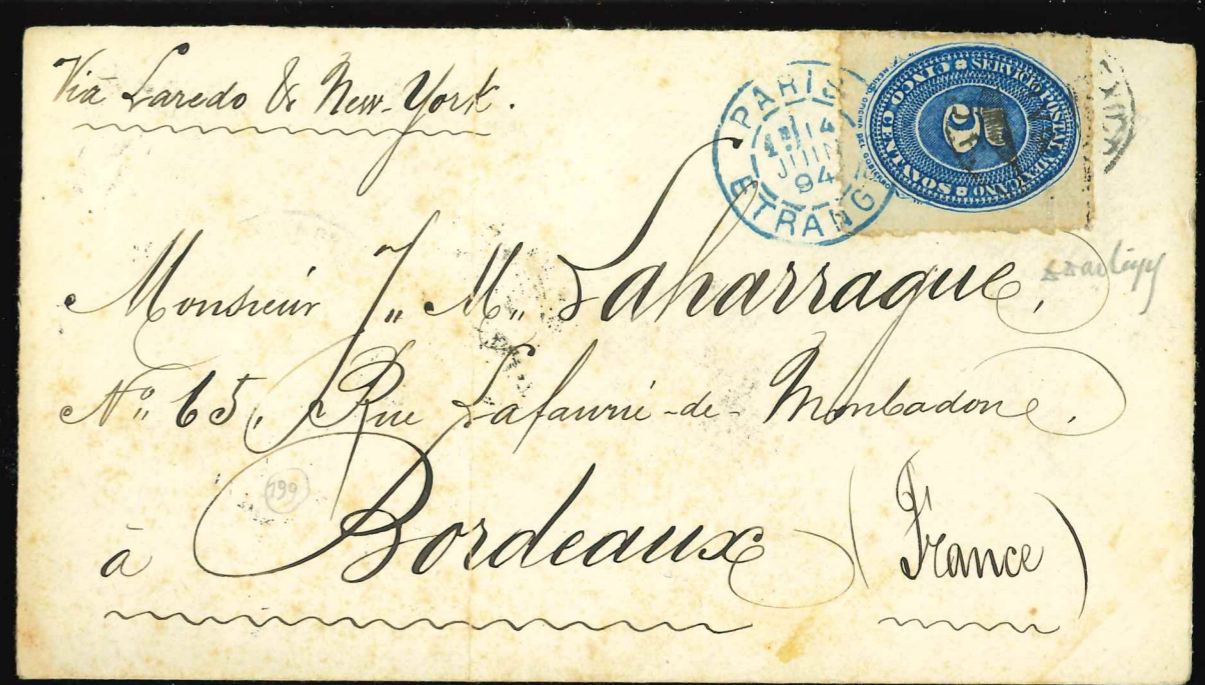 Via Laredo & New-York.
PARIS
14
JUIN
94
ETRANG
SERVICIO POSTAL MEXICANO
CINCO CENTAVOS
5
Monsieur J„ M„ Laharrague,
Nº 65, Rue Lafaurie-de-Monbadon,
199
à Bordeaux (France)